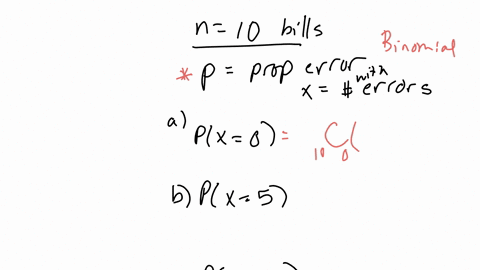 n = 10 bills
Binomial
* p = prop error
with
x = # errors
a) P(x = 0) = ₁₀C₀(
b) P(x = 5)